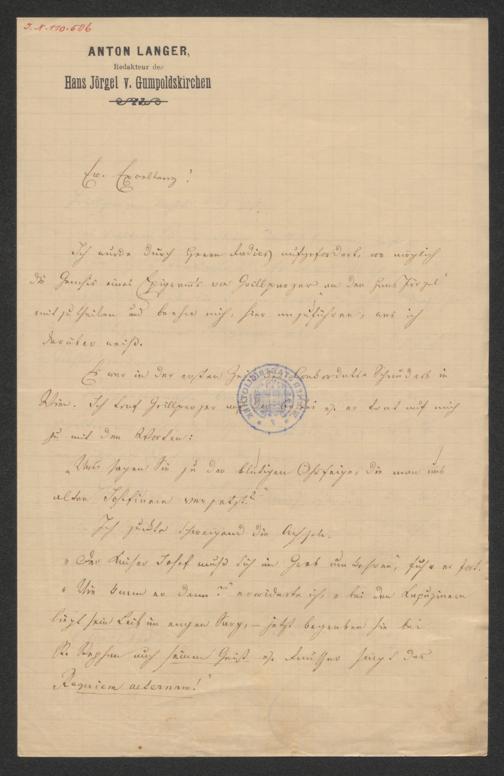 I. N. 110.606
ANTON LANGER,
Redakteur des
Hans Jörgel v. Gumpoldskirchen
Ew. Excellenz!
Ich wurde durch Herrn Radics aufgefordert, wo möglich
die Genesis eines Epigramm's von Grillparzer an den Hans Jörgel
mitzutheilen und beehre mich, hier anzuführen, was ich
darüber weiß.
Es war in der ersten Zeit Concordats in
Wien. Ich traf Grillparzer er trat auf mich
zu mit den Worten:
„Was sagen Sie zu der blutigen Ohrfeige, die man uns
alten Josefinern versetzt?"
Ich zuckte schweigend die Achseln.
„Der Kaiser Josef muß sich im Grab umkehren", fuhr er fort.
„Wie kann er denn?" erwiderte ich, „bei den Kapuzinern
liegt sein Leib im engen Sarg, – jetzt begraben sie bei
St. Stephan auch seinen Geist u. Rauscher singt das
Requiem aeternam!"